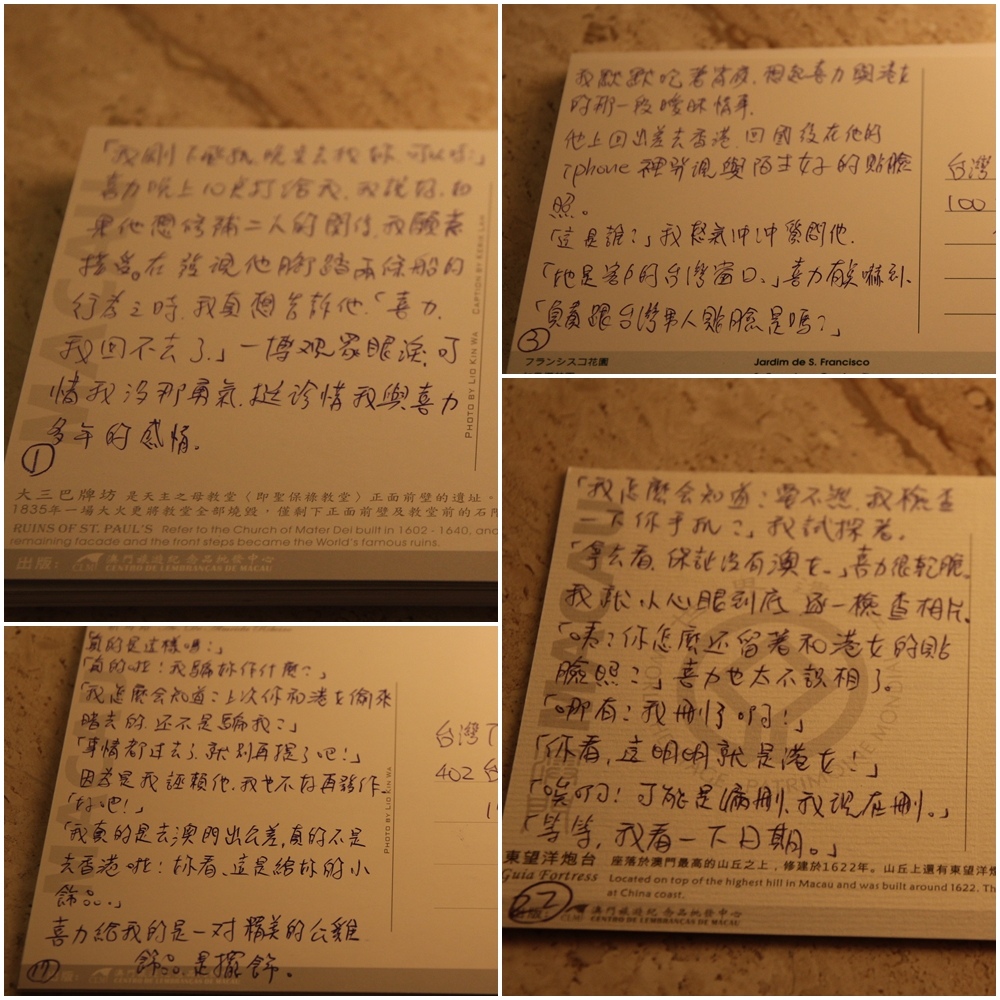 「我剛下飛機,晚安去找妳,可以嗎?」
喜力晚上10点打給我,我說好,如
果他想修補二人的關係,我願意
接受。在發現他腳踏兩條船的
行為之時,我真想告訴他「喜力,
我回不去了。」一博观眾眼淚,可
惜我沒那勇氣,挺珍惜我與喜力
多年的感情。
①
MACAU
PHOTO BY LIO KIN WA CAPTION BY
大三巴牌坊 是天主之母教堂(即聖保祿教堂)正面前壁的遺址。
1835年一場大火更將教堂全部燒毀,僅剩下正面前壁及教堂前的石階
RUINS OF ST. PAUL'S Refer to the Church of Mater Dei built in 1602 - 1640, and
remaining facade and the front steps became the World's famous ruins.
出版: 澳門旅遊紀念品批發中心
CENTRO DE LEMBRANCAS DE MACAU
我默默吃著宵夜,想起喜力與港女
的那一段曖昧情事。
他上回出差去香港,回國後在他的
iphone裡發現與陌生女子的貼臉
照。
「這是誰?」我怒氣冲冲質問他。
「她是客户的台灣窗口。」喜力有点嚇到。
「負責跟台灣男人貼臉是嗎?」
③
台灣
100
フランシスコ花園
Jardim de S. Francisco
真的是這樣嗎?」
「真的啦!我騙妳作什麼?」
「我怎麼会知道?上次你和港女偷來
暗去的,还不是騙我?」
「事情都过去了,就别再提了吧!」
因為是我誣賴他,我也不好再發作。
「好吧!」
「我真的是去澳門出公差,真的不是
去香港啦!妳看,這是給妳的小
飾品。」
喜力給我的是一对精美的公雞
飾品,是擺飾。
⑰
PHOTO BY LIO KIN WA
台灣
402 台
1
澳門旅遊紀念品批發中心
CENTRO DE LEMBRANCAS DE MACAU
「我怎麼会知道?要不然,我檢查
一下你手机?」我試探著。
「拿去看,保証沒有澳女。」喜力很乾脆。
我就小心眼到底,逐一檢查相片。
「咦?你怎麼还留著和港女的貼
臉照?」喜力也太不識相了。
「哪有?我刪了啊!」
「你看,這明明就是港女!」
「唉呀!可能是漏刪,我現在刪。」
「等等,我看一下日期。」
㉒
MACAU
東望洋炮台 座落於澳門最高的山丘之上,修建於1622年。山丘上還有東望洋燈
Guia Fortress Located on top of the highest hill in Macau and was built around 1622. Th
at China coast.
澳門旅遊紀念品批發中心
CENTRO DE LEMBRANCAS DE MACAU